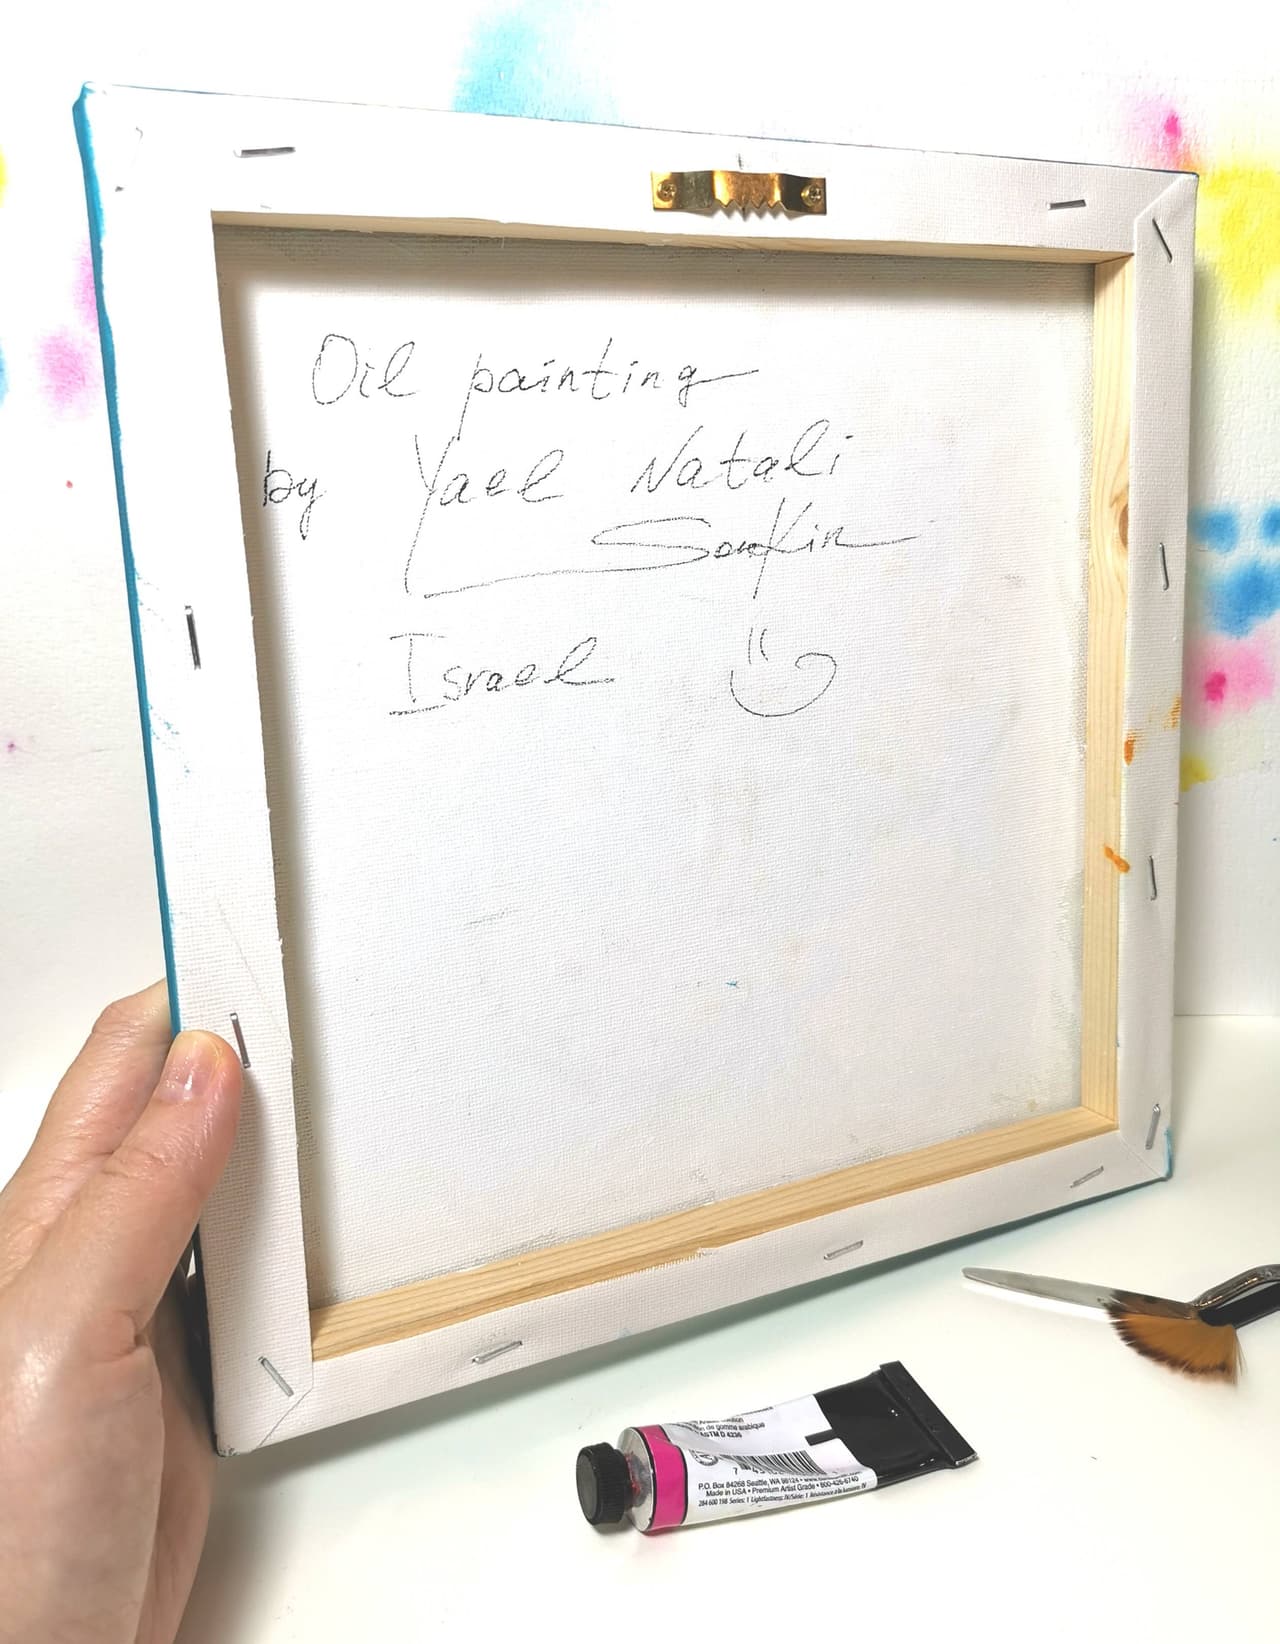 Oil painting
by Yael Natali
Sorkin
Israel
de gomme arabique
ASTM D 4236
P.O. Box 84268 Seattle, WA 98124 •
Made in USA • Premium Artist Grade • 800-426-6740
284 600 198 Series: 1 Lightfastness: IV/Série: 1 Résistance à la lumière: IV